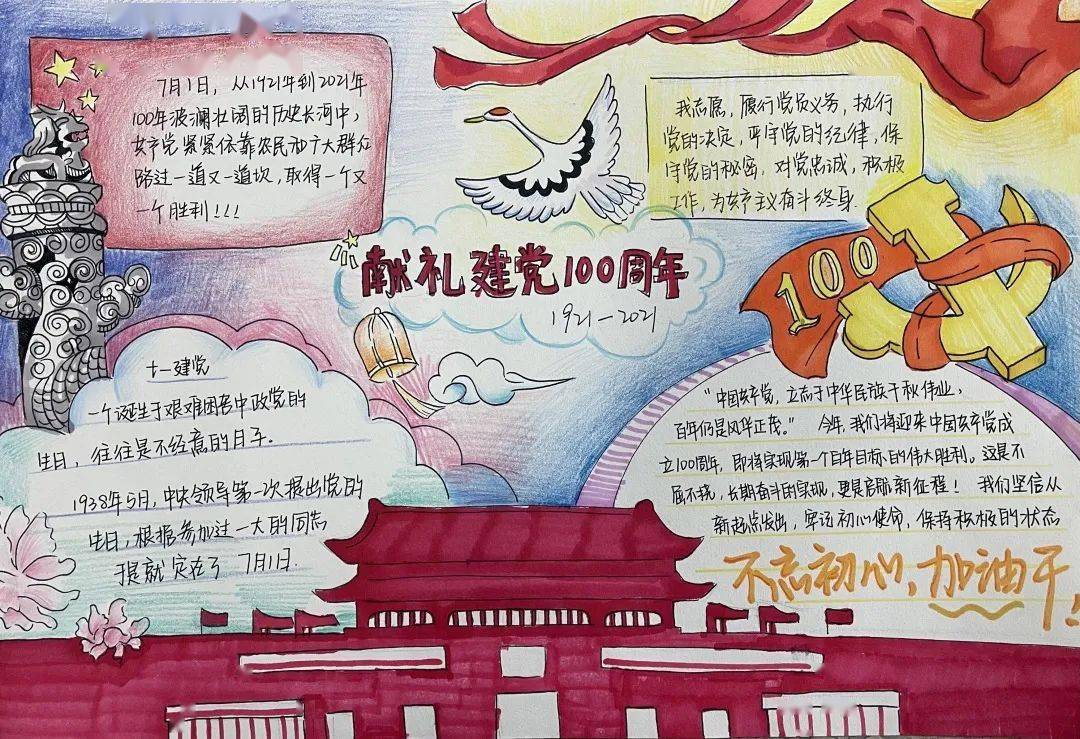 7月1日，从1921年到2021年
100年波澜壮阔的历史长河中，
共产党紧紧依靠农民和广大群众
路过一道又一道坎，取得一个又
一个胜利！！！
我志愿，履行党员义务，执行
党的决定，严守党的纪律，保
守党的秘密，对党忠诚，积极
工作，为共产主义奋斗终身.
100
献礼建党100周年
1921—2021
十一建党
一个诞生于艰难困苦中政党的
生日，往往是不经意的日子.
1938年5月，中央领导第一次提出党的
生日，根据参加过一大的同志
于是就定在了 7月1日.
“中国共产党，立志于中华民族千秋伟业，
百年仍是风华正茂。” 今年，我们将迎来中国共产党成
立100周年，即将实现第一个百年目标的伟大胜利。这是不
屈不挠，长期奋斗的实现，更是启航新征程！ 我们坚信从
新起点出发，牢记初心使命，保持积极的状态
不忘初心，加油干！